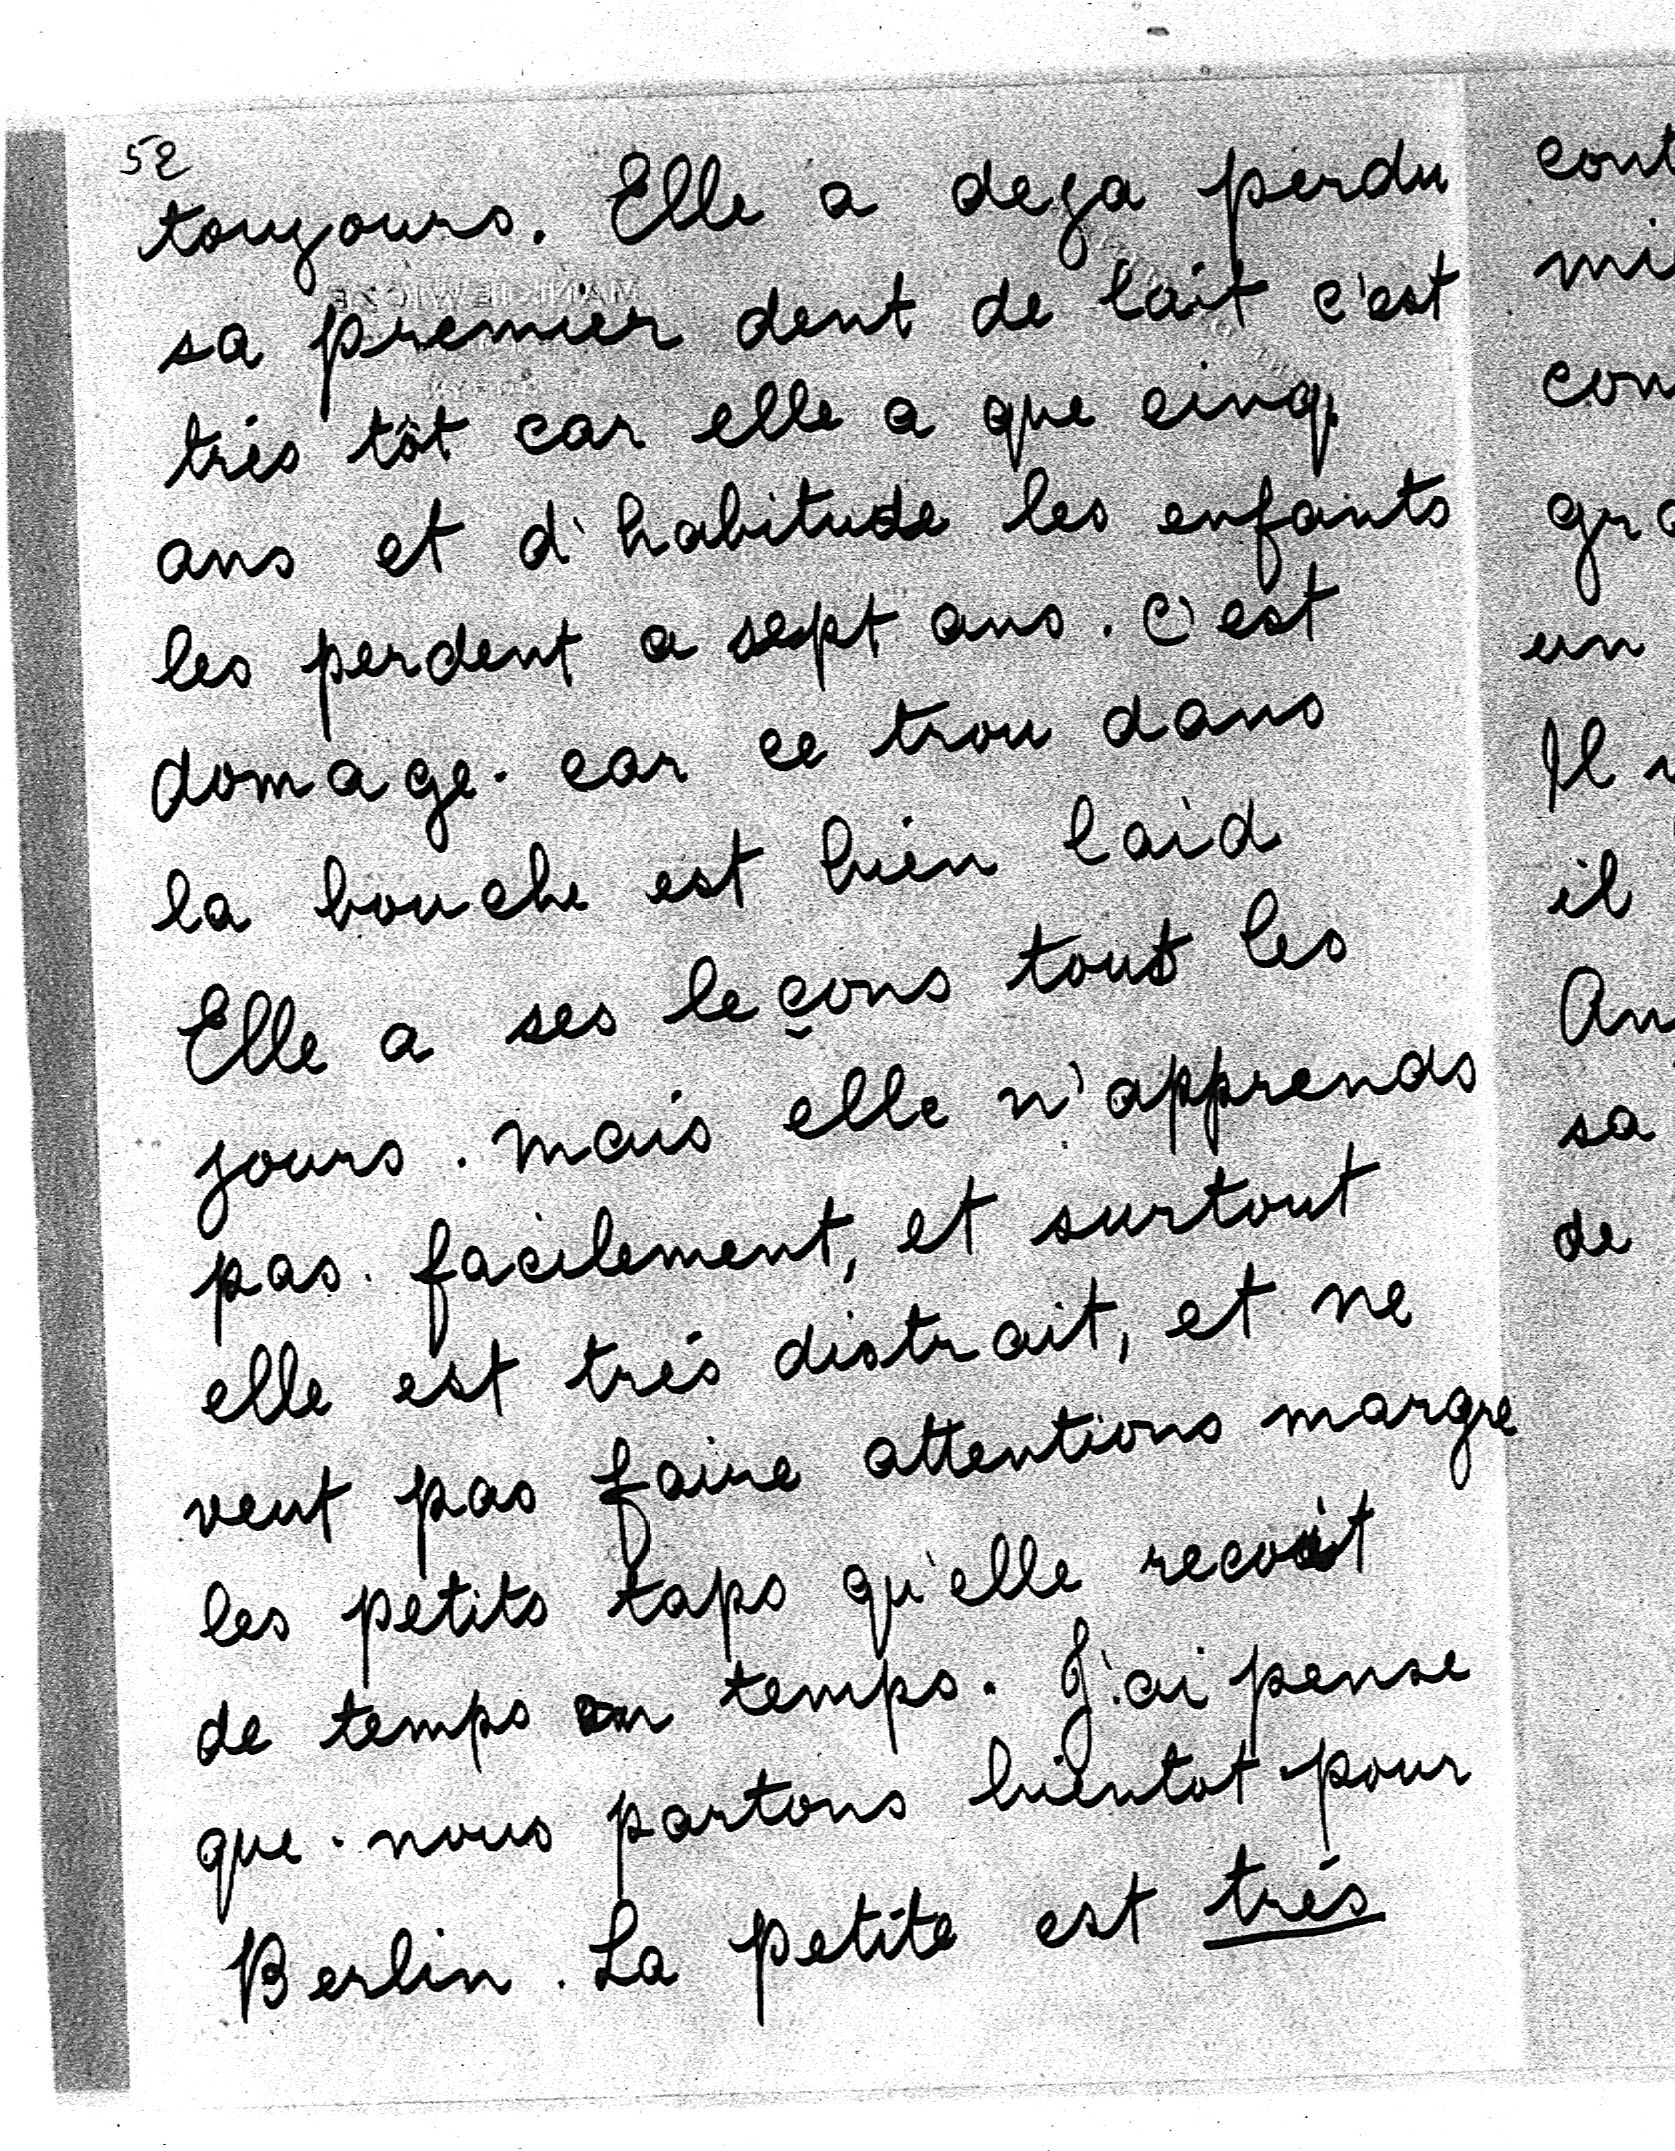 52
toujours. Elle a deja perdu
sa premier dent de lait c'est
très tôt car elle a que cinq
ans et d'habitude les enfants
les perdent a sept ans. C'est
domage. car ce trou dans
la bouche est bien laid
Elle a ses leçons tout les
jours. Mais elle n'apprends
pas. facilement, et surtout
elle est très distrait, et ne
veut pas faire attentions margre
les petits taps qu'elle recoit
de temps en temps. J'ai pense
que. nous partons bientot pour
Berlin. La petite est très
un
Il
il
sa
de